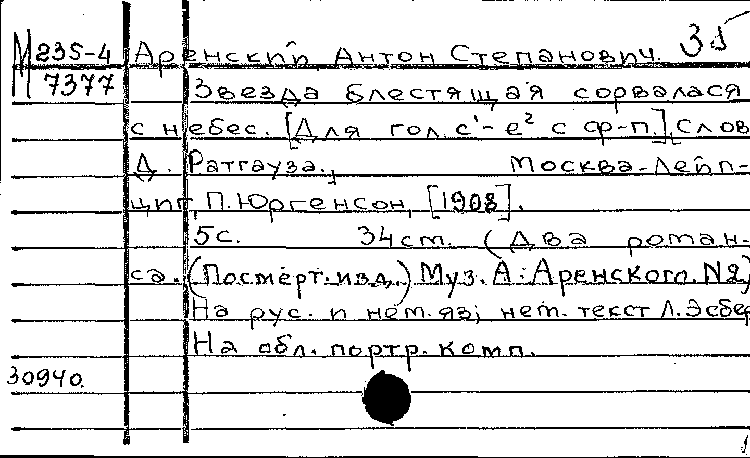 М 235-4 Аренский, Антон Степанович. 35
7377 Звезда блестящая сорвалася
с небес. [Для гол. c¹-e² с ф-п.] Слов
Д. Ратгауза. Москва-Лейп-
циг, П. Юргенсон, [1908].
5с. 34см. (Два роман-
са. (Посмерт. изд.) Муз. А. Аренского. №2)
На рус. и нем. яз; нем. текст Л. Эсбер
На обл. портр. комп.
30940.